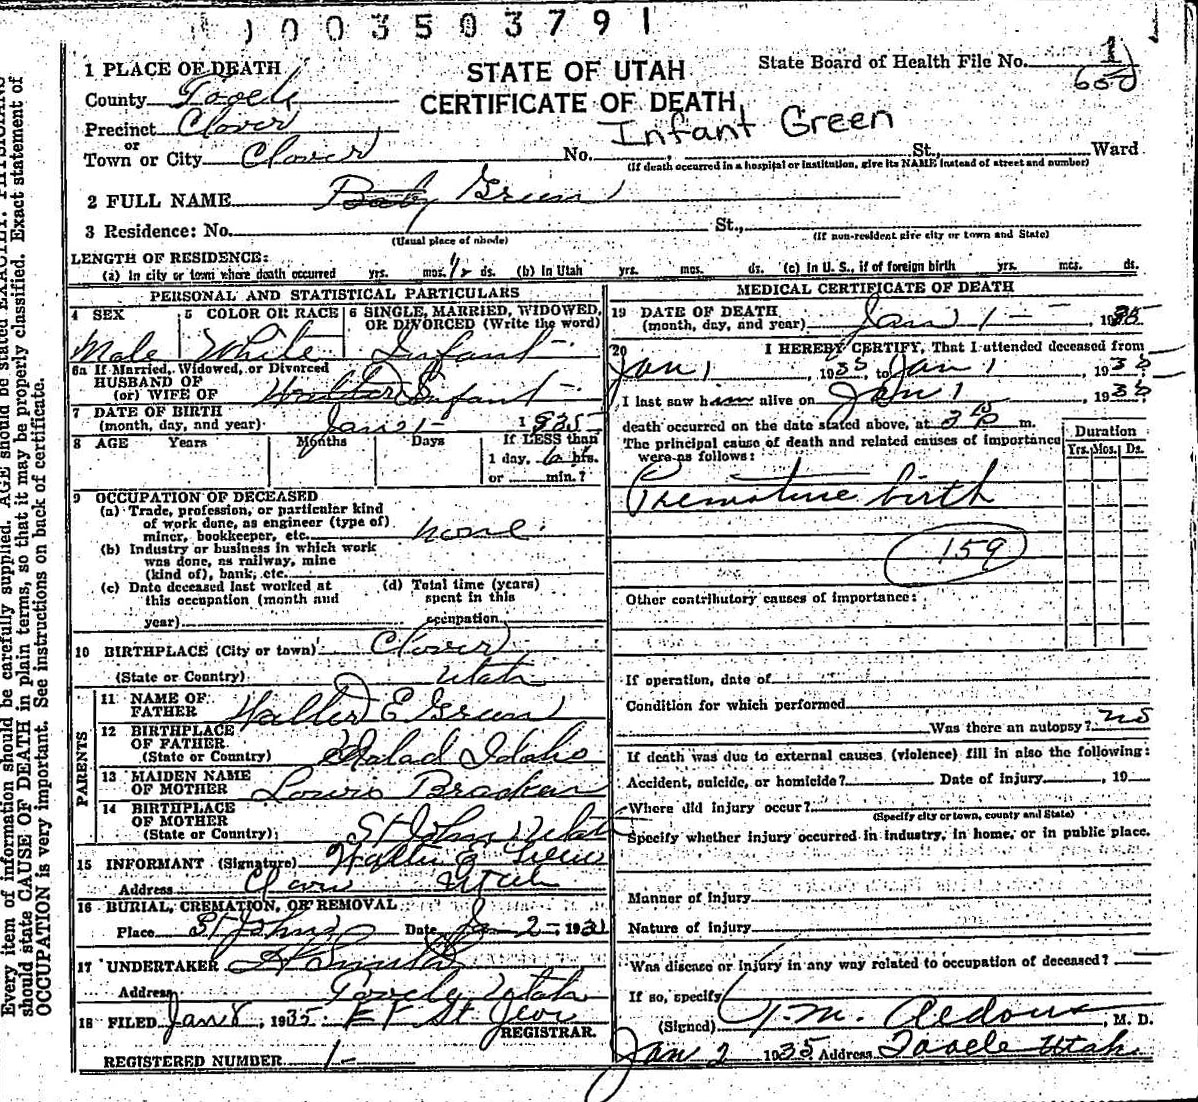 1003503791
1 PLACE OF DEATH
STATE OF UTAH
CERTIFICATE OF DEATH
State Board of Health File No. 1
600
County Tooele
Precinct Clover
or
Town or City Clover No. St., Ward
Infant Green
(If death occurred in a hospital or institution, give its NAME instead of street and number)
2 FULL NAME Baby Green
3 Residence: No. St.,
(Usual place of abode) (If non-resident give city or town and State)
LENGTH OF RESIDENCE:
(a) In city or town where death occurred yrs. mos. ds. (b) In Utah yrs. mos. ds. (c) In U. S., if of foreign birth yrs. mos. ds.
PERSONAL AND STATISTICAL PARTICULARS
4 SEX 5 COLOR OR RACE 6 SINGLE, MARRIED, WIDOWED, OR DIVORCED (Write the word)
Male White Infant
6a If Married, Widowed, or Divorced
HUSBAND OF
(or) WIFE OF Infant
7 DATE OF BIRTH
(month, day, and year) Jan 1 - 1935
8 AGE Years Months Days If LESS than
1 day, 6 hrs.
or min.?
9 OCCUPATION OF DECEASED
(a) Trade, profession, or particular kind
of work done, as engineer (type of)
miner, bookkeeper, etc. none
(b) Industry or business in which work
was done, as railway, mine
(kind of), bank, etc.
(c) Date deceased last worked at
this occupation (month and
year)
(d) Total time (years)
spent in this
occupation
10 BIRTHPLACE (City or town) Clover
(State or Country) Utah
PARENTS
11 NAME OF
FATHER Walter E Green
12 BIRTHPLACE
OF FATHER
(State or Country) Malad Idaho
13 MAIDEN NAME
OF MOTHER Bracken
14 BIRTHPLACE
OF MOTHER
(State or Country) St John Utah
15 INFORMANT (Signature) Walter E Green
Address Clover Utah
16 BURIAL, CREMATION, OR REMOVAL
Place St Johns Date Jan 2 - 193
17 UNDERTAKER
Address Tooele, Utah
18 FILED Jan 8, 1935. St Jeor
REGISTRAR.
REGISTERED NUMBER 1 -
MEDICAL CERTIFICATE OF DEATH
19 DATE OF DEATH
(month, day, and year) Jan 1 - , 1935
20 I HEREBY CERTIFY, That I attended deceased from
Jan 1, 1935 to Jan 1, 1935
I last saw h alive on Jan 1, 1935
death occurred on the date stated above, at m.
The principal cause of death and related causes of importance
were as follows:
Duration
Yrs. Mos. Ds.
Premature birth
159
Other contributory causes of importance:
If operation, date of
Condition for which performed
Was there an autopsy? no
If death was due to external causes (violence) fill in also the following:
Accident, suicide, or homicide? Date of injury , 19
Where did injury occur?
(Specify city or town, county and State)
Specify whether injury occurred in industry, in home, or in public place.
Manner of injury
Nature of injury
Was disease or injury in any way related to occupation of deceased?
If so, specify
(Signed) T. M. Aldous, M. D.
Jan 2 1935 Address Tooele Utah
should state CAUSE OF DEATH in plain terms, so that it may be properly classified. Exact statement of
OCCUPATION is very important. See instructions on back of certificate.